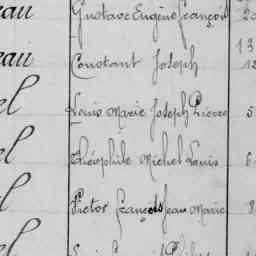 eau Gustave Eugène François 20
13
eau Constant Joseph 12
el Louis Marie Joseph Pierre 5
el Théophile Michel Louis 6
el Victor François Jean Marie 8
el